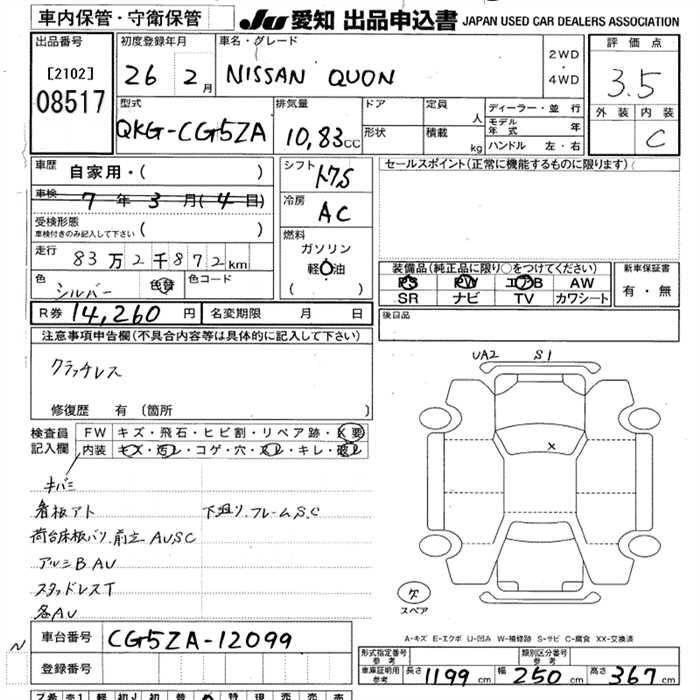 車内保管・守衛保管
JU 愛知 出品申込書 JAPAN USED CAR DEALERS ASSOCIATION
出品番号
[2102]
08517
初度登録年月
26 2月
車名・グレード
NISSAN QUON
2WD
・
4WD
評価点
3.5
外装 内装
C
型式
QKG-CG5ZA
排気量
10,83cc
ドア
形状
定員 人
積載 kg
ディーラー・並行
モデル年式 年
ハンドル 左・右
車歴 自家用・( )
車検 7年3月(4日)
受検形態
車検付きのみ記入して下さい ( )
走行 83万2千872km
色 シルバー
色替
色コード
シフト
冷房 AC
燃料
ガソリン
軽油
( )
セールスポイント(正常に機能するものに限ります)
装備品(純正品に限り○をつけてください)
PS PW エアB AW
SR ナビ TV カワシート
新車保証書
有・無
R券 14,260円
名変期限 月 日
後日品
注意事項申告欄(不具合内容等は具体的に記入して下さい)
クラッチレス
修復歴 有 (箇所 )
検査員記入欄
FW キズ・飛石・ヒビ割・リペア跡・X要
内装 キズ・汚レ・コゲ・穴・スレ・キレ・破レ
キバミ
看板アト 下廻り、フレームS.C
荷台床板バリ、前立AU,SC
アルミB AU
スタッドレスT
各AU
UA2 S1
X
欠
スペア
A-キズ E-エクボ U-凹み W-補修跡 S-サビ C-腐食 XX-交換済
N
車台番号 CG5ZA-12099
登録番号
形式指定番号
参考
類別区分番号
参考
車庫証明用
参考
長さ 1199cm 幅 250cm 高さ 367cm